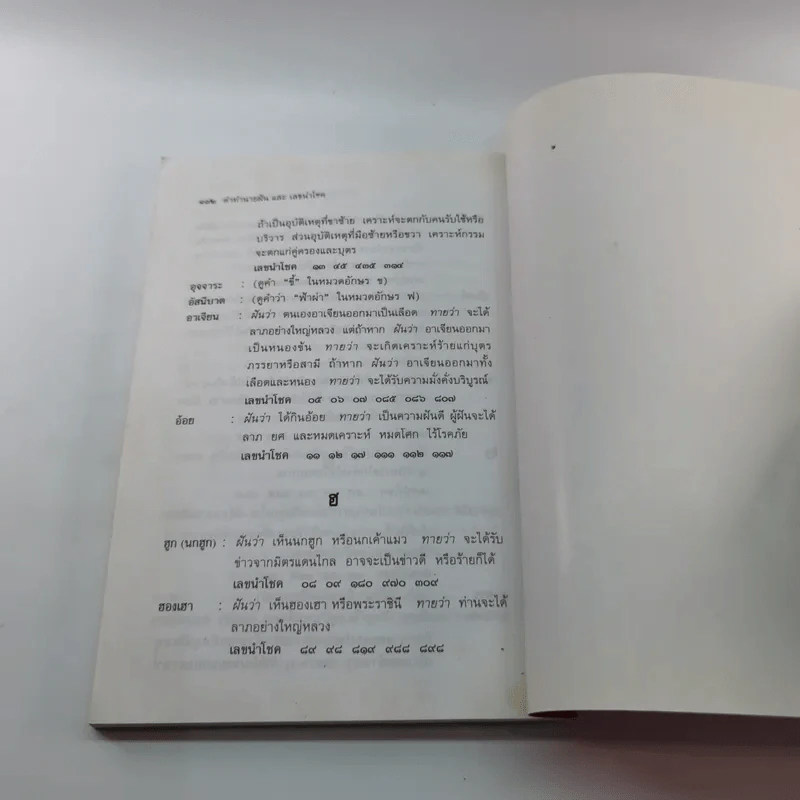 ๑๓๒ ตำทำนายฝัน และ เลขนำโชค
ถ้าเป็นอุบัติเหตุที่ขาซ้าย เคราะห์จะตกกับคนรับใช้หรือ
บริวาร ส่วนอุบัติเหตุที่มือซ้ายหรือขวา เคราะห์กรรม
จะตกแก่คู่ครองและบุตร
เลขนำโชค ๑๓ ๔๕ ๔๓๕ ๓๑๔
อุจจาระ : (ดูคำ "ขี้" ในหมวดอักษร ข)
อัสนีบาต : (ดูคำว่า "ฟ้าผ่า" ในหมวดอักษร ฟ)
อาเจียน : ฝันว่า ตนเองอาเจียนออกมาเป็นเลือด ทายว่า จะได้
ลาภอย่างใหญ่หลวง แต่ถ้าหาก ฝันว่า อาเจียนออกมา
เป็นหนองข้น ทายว่า จะเกิดเคราะห์ร้ายแก่บุตร
ภรรยาหรือสามี ถ้าหาก ฝันว่า อาเจียนออกมาทั้ง
เลือดและหนอง ทายว่า จะได้รับความมั่งคั่งบริบูรณ์
เลขนำโชค ๐๕ ๐๖ ๐๗ ๐๘๕ ๐๘๖ ๘๐๗
อ้อย : ฝันว่า ได้กินอ้อย ทายว่า เป็นความฝันดี ผู้ฝันจะได้
ลาภ ยศ และหมดเคราะห์ หมดโศก ไร้โรคภัย
เลขนำโชค ๑๑ ๑๒ ๑๗ ๑๑๑ ๑๑๒ ๑๑๗
ฮ
ฮูก (นกฮูก) : ฝันว่า เห็นนกฮูก หรือนกเค้าแมว ทายว่า จะได้รับ
ข่าวจากมิตรแดนไกล อาจจะเป็นข่าวดี หรือร้ายก็ได้
เลขนำโชค ๐๘ ๐๙ ๑๘๐ ๙๗๐ ๓๐๙
ฮองเฮา : ฝันว่า เห็นฮองเฮา หรือพระราชินี ทายว่า ท่านจะได้
ลาภอย่างใหญ่หลวง
เลขนำโชค ๘๙ ๙๘ ๘๑๙ ๙๘๘ ๘๙๘